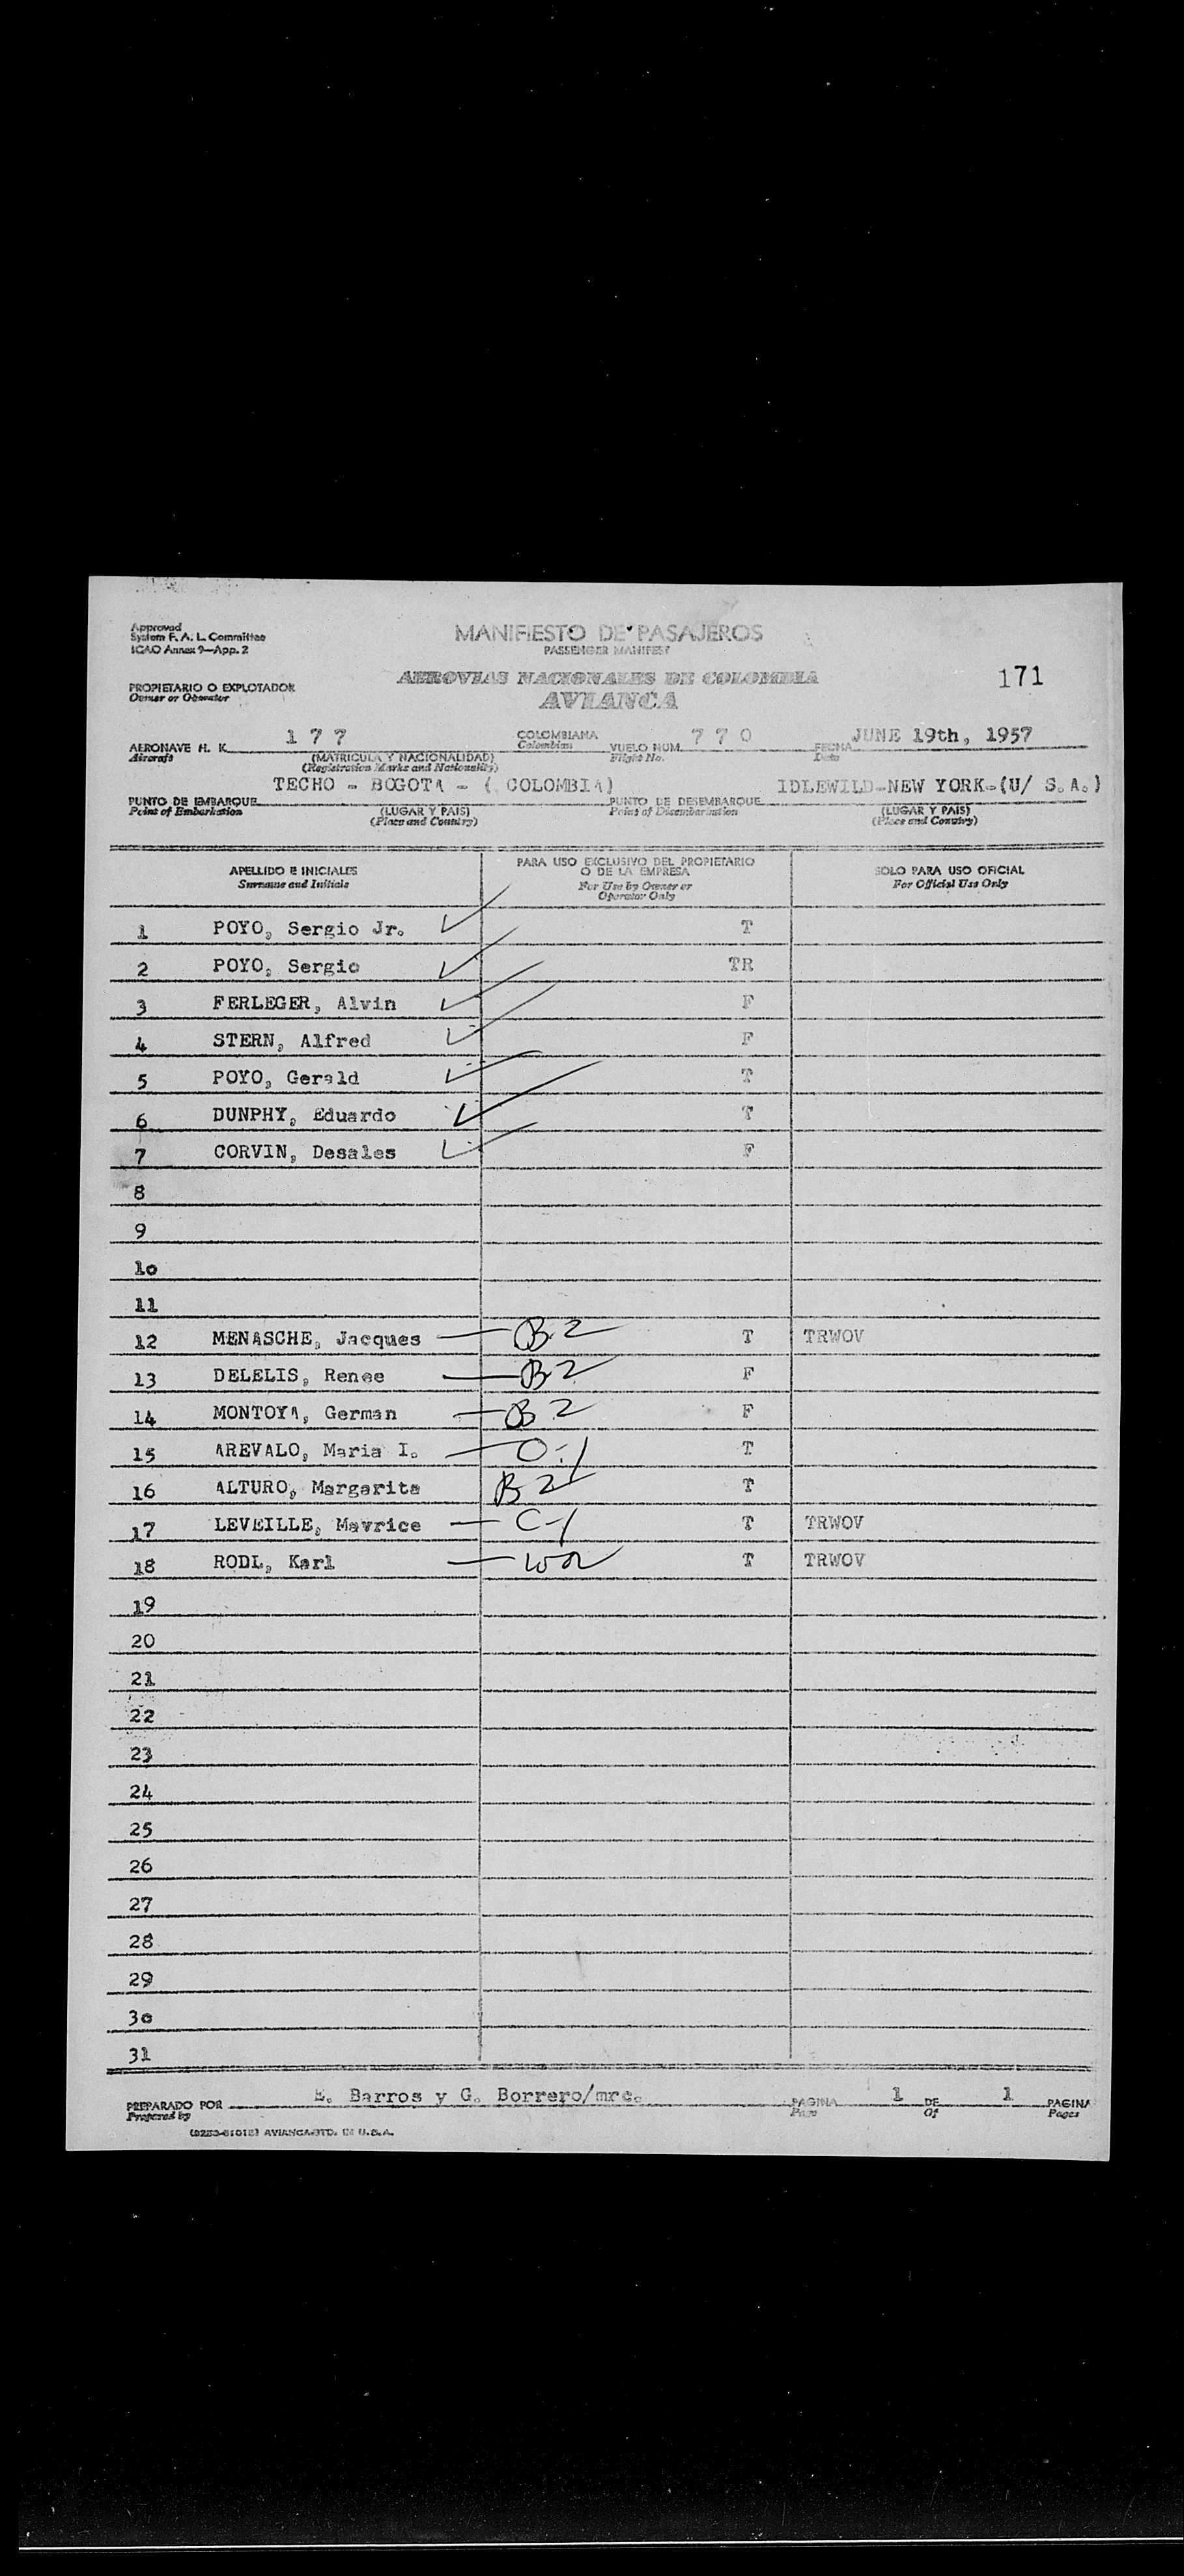 Approved
System F. A. L. Committee
ICAO Annex 9—App. 2
MANIFIESTO DE PASAJEROS
PASSENGER MANIFEST
AEROVIAS NACIONALES DE COLOMBIA
AVIANCA
171
PROPIETARIO O EXPLOTADOR
Owner or Operator
AERONAVE H. K. 1 7 7 COLOMBIANA VUELO NUM. 7 7 0 FECHA JUNE 19th, 1957
Aircraft (MATRICULA Y NACIONALIDAD) Colombian Flight No. Date
(Registration Marks and Nationality)
PUNTO DE EMBARQUE TECHO - BOGOTA - ( COLOMBIA) PUNTO DE DESEMBARQUE IDLEWILD-NEW YORK-(U/ S.A.)
Point of Embarkation (LUGAR Y PAIS) Point of Disembarkation (LUGAR Y PAIS)
(Place and Country) (Place and Country)
APELLIDO E INICIALES
Surname and Initials
PARA USO EXCLUSIVO DEL PROPIETARIO
O DE LA EMPRESA
For Use by Owner or
Operator Only
SOLO PARA USO OFICIAL
For Official Use Only
1 POYO, Sergio Jr. T
2 POYO, Sergio TR
3 FERLEGER, Alvin F
4 STERN, Alfred F
5 POYO, Gerald T
6 DUNPHY, Eduardo T
7 CORVIN, Desales F
8
9
10
11
12 MENASCHE, Jacques — B2 T TRWOV
13 DELELIS, Renee — B2 F
14 MONTOYA, German — B2 F
15 AREVALO, Maria I. — O-1 T
16 ALTURO, Margarita B2 T
17 LEVEILLE, Mavrice — C-1 T TRWOV
18 RODL, Karl — T TRWOV
19
20
21
22
23
24
25
26
27
28
29
30
31
PREPARADO POR E. Barros y G. Borrero/mrc. PAGINA 1 DE 1 PAGINA
Prepared by Page Of Pages
AVIANCA-STD. IN U.S.A.